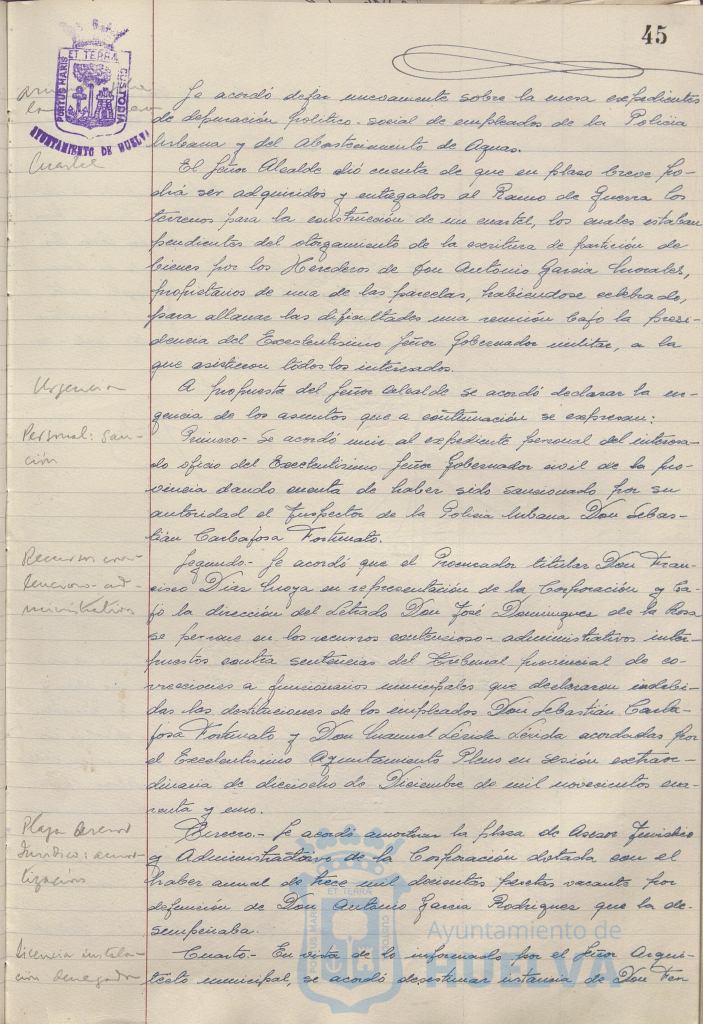 45
PORTUS MARIS ET TERRÆ CUSTODIA
AYUNTAMIENTO DE HUELVA
Se acordó dejar nuevamente sobre la mesa expedientes
de depuración politico-social de empleados de la Policia
Urbana y del Abastecimiento de Aguas.
Cuartel
El Señor Alcalde dió cuenta de que en plazo breve po-
drá ser adquiridos y entregados al Ramo de Guerra los
terrenos para la construcción de un cuartel, los cuales estaban
pendientes del otorgamiento de la escritura de partición de
bienes por los Herederos de Don Antonio Garcia Morales,
propietarios de una de las parcelas, habiendose celebrado,
para allanar las dificultades una reunión bajo la presi-
dencia del Excelentisimo Señor Gobernador militar, a la
que asistieron todos los interesados.
Urgencia
A propuesta del Señor Alcalde se acordó declarar la ur-
gencia de los asuntos que a continuación se expresan:
Personal: San-
ción
Primero- Se acordó unir al expediente personal del interesa-
do oficio del Excelentisimo Señor Gobernador civil de la pro-
vincia dando cuenta de haber sido sancionado por su
autoridad el Inspector de la Policia Urbana Don Sebas-
tián Carbajosa Fortunato.
Recursos con-
tencioso-ad-
ministrativos
Segundo- Se acordó que el Procurador titular Don Fran-
cisco Diaz Moya en representación de la Corporación y ba-
jo la dirección del Letrado Don José Dominguez de la Rosa
se persone en los recursos contencioso-administrativos inter-
puestos contra sentencias del Tribunal provincial de co-
rrecciones a funcionarios municipales que declararon indebi-
das las destituciones de los empleados Don Sebastián Carba-
josa Fortunato y Don Manuel Lérida Lérida acordadas por
el Excelentisimo Ayuntamiento Pleno en sesión extraor-
dinaria de dieciocho de Diciembre de mil novecientos cua-
renta y uno.
Plaza Asesor
Juridico: amor-
tización
Tercero.- Se acordó amortizar la plaza de Asesor Juridico
y Administrativo de la Corporación dotada con el
haber anual de trece mil doscientas pesetas vacante por
defunción de Don Antonio Garcia Rodriguez que la de-
sempeñaba.
Licencia instala-
ción denegada
Cuarto.- En vista de lo informado por el Señor Arqui-
tecto municipal, se acordó desestimar instancia de Don Fer
Ayuntamiento de
HUELVA